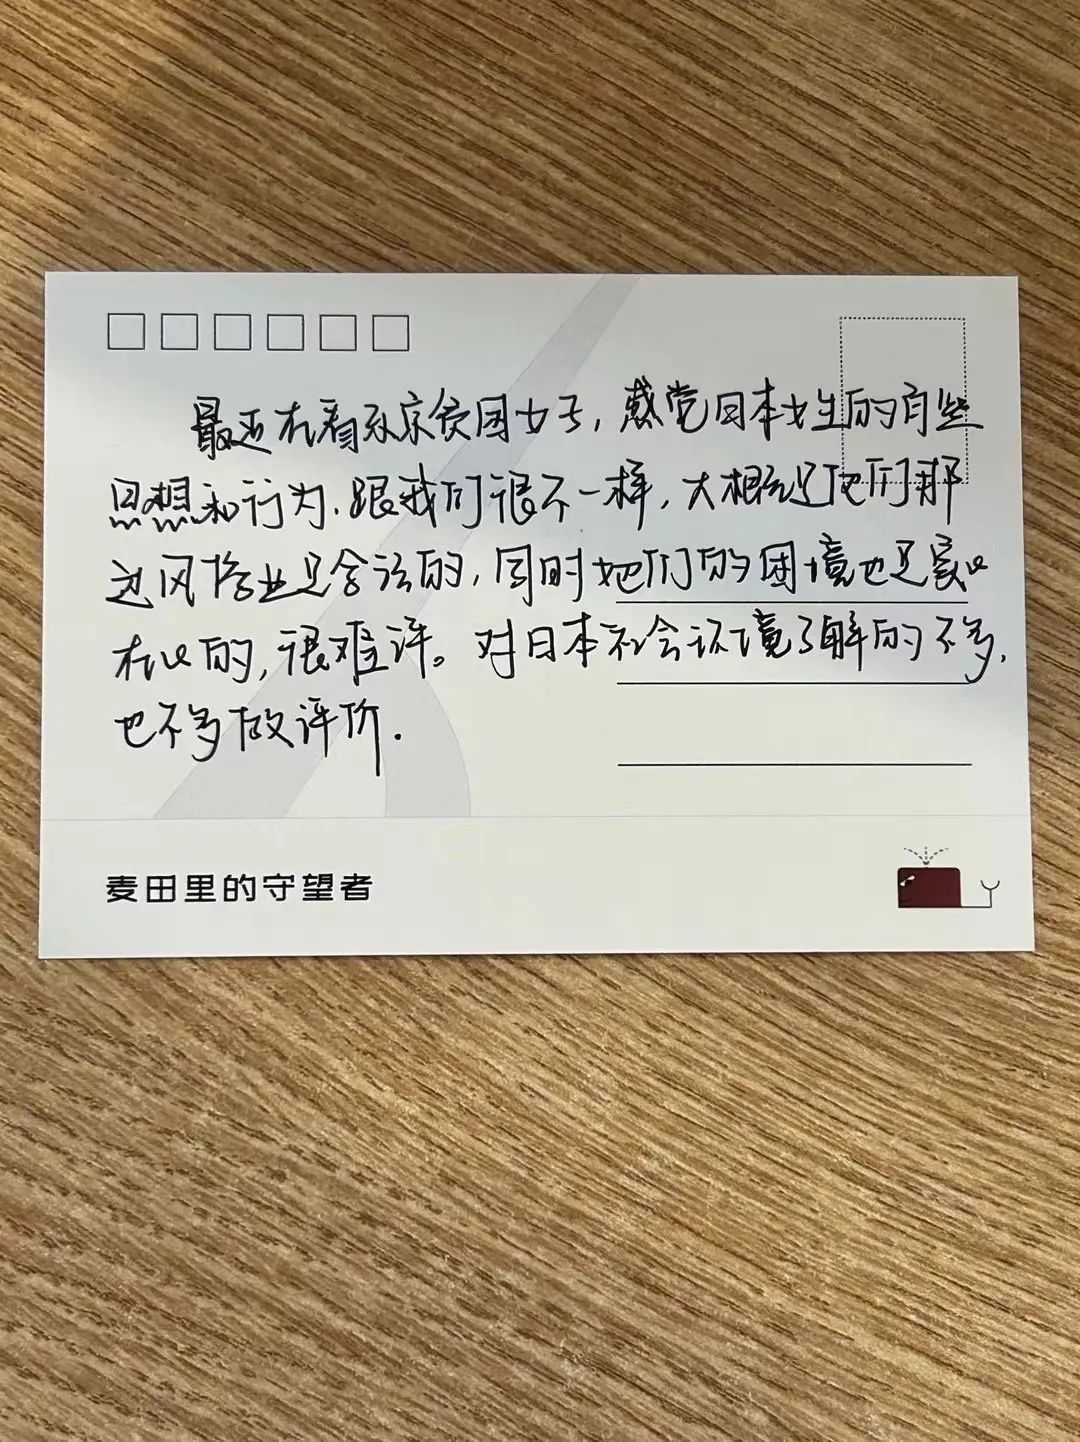 最近在看东京贫困女子,感觉日本女生的有些
思想和行为.跟我们很不一样,大概是他们那
边风俗业是合法的,同时她们的困境也是实实
在在的,很难评。对日本社会环境了解的不多,
也不多做评价.
麦田里的守望者